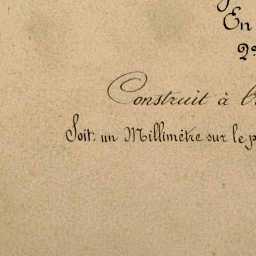 En
2
Construit à
Soit: un Millimètre sur le